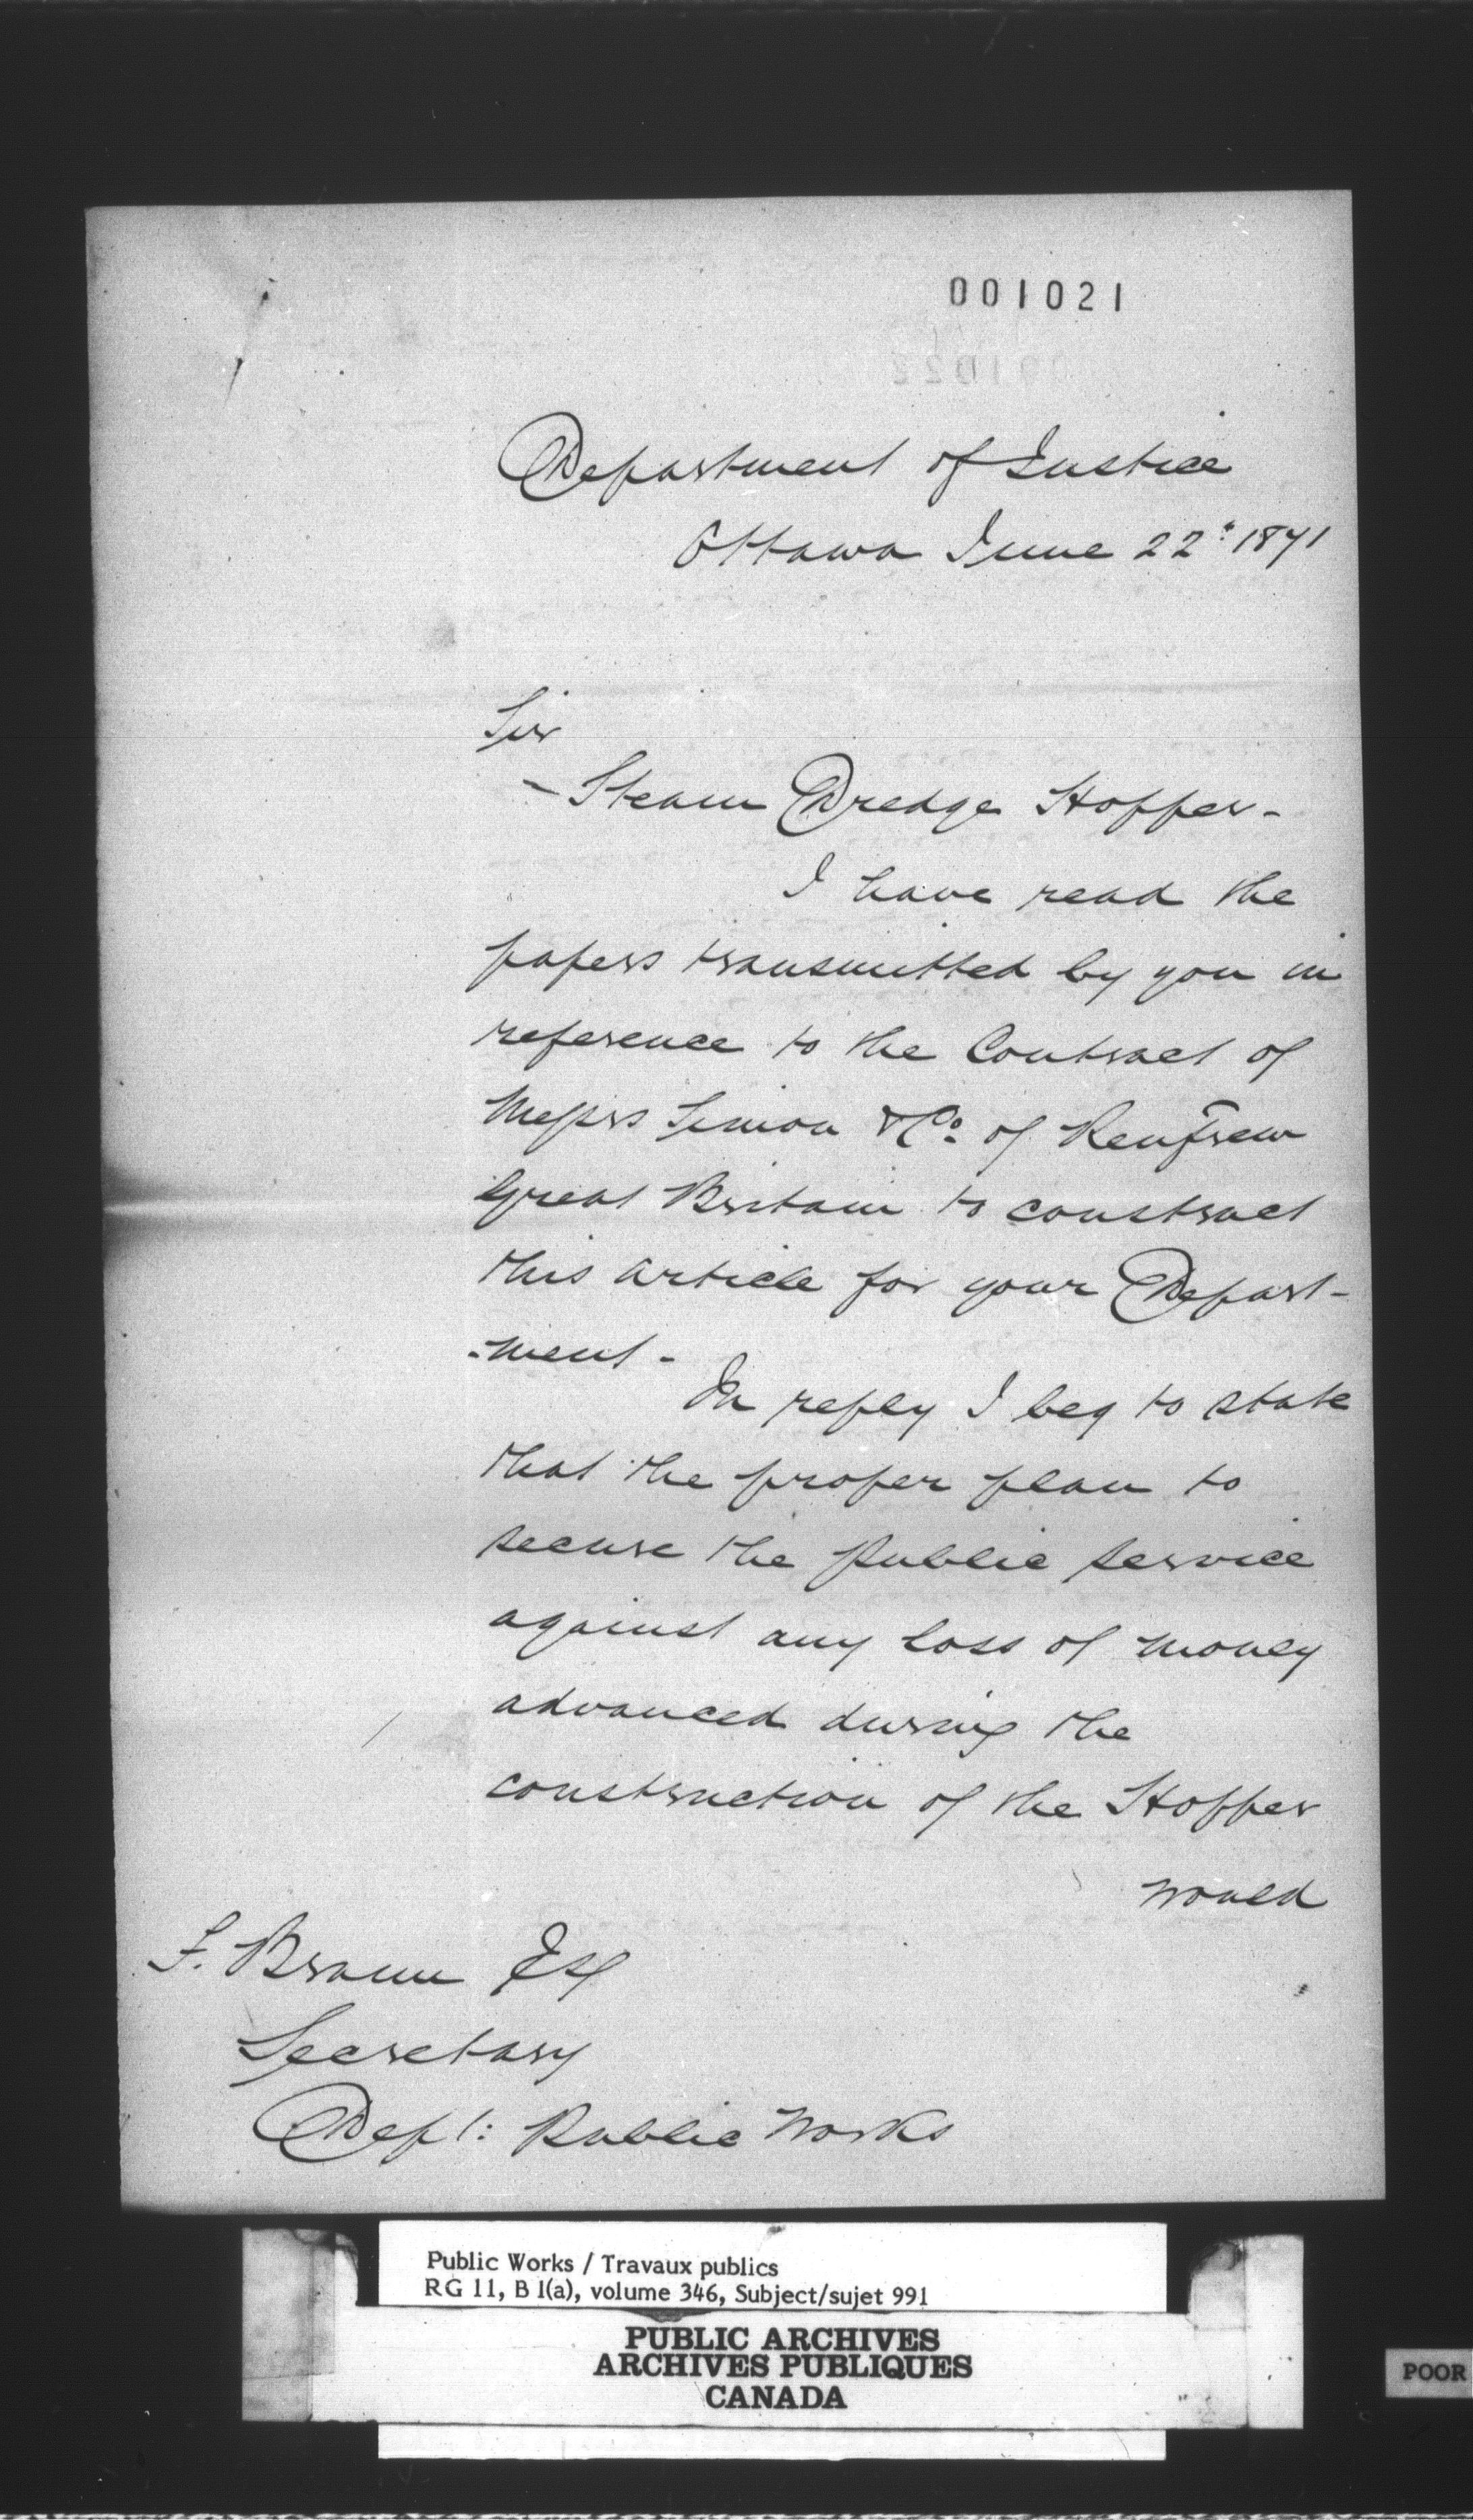 001021
Department of Justice
Ottawa June 22: 1871
Sir
- Steam Dredge Hopper -
I have read the
papers transmitted by you in
reference to the Contract of
Messrs Simon & Co. of Renfrew
Great Britain to construct
this article for your Depart-
-ment -
In reply I beg to state
that the proper plan to
secure the public service
against any loss of money
advanced during the
construction of the Hopper
would
F. Braun Esq
Secretary
Dept: Public Works
Public Works / Travaux publics
RG 11, B 1(a), volume 346, Subject/sujet 991
PUBLIC ARCHIVES
ARCHIVES PUBLIQUES
CANADA
POOR